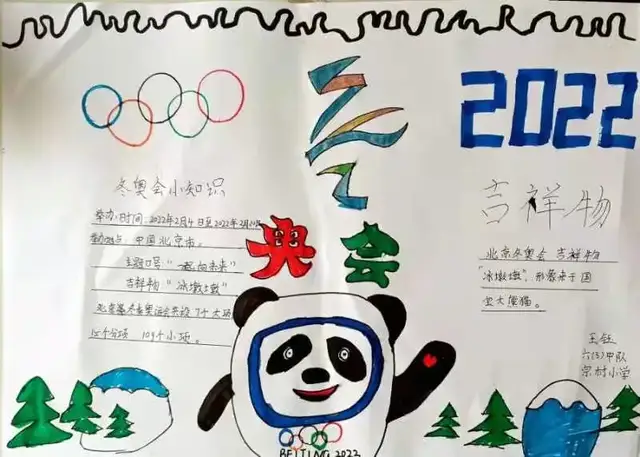 2022
奥会
冬奥会小知识
举办时间:2022年2月4日至2022年2月20日
举办地点:中国北京市。
主题口号"一起向未来"
吉祥物"冰墩墩"
北京冬季奥运会共设7个大项
15个分项 109个小项。
吉祥物
北京冬奥会吉祥物
"冰墩墩",形象来于国
宝大熊猫。
王钰
六(5)中队
宗村小学
BEIJING 2022